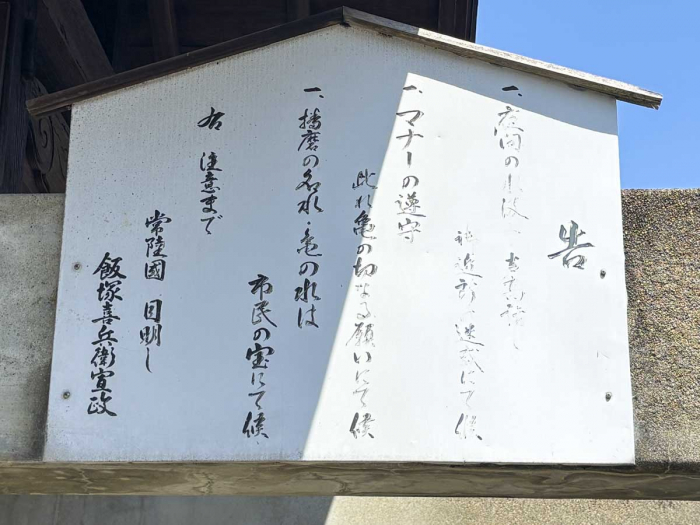 告
一、夜間の水汲
近所迷惑にて候
一、マナーの遵守
此れ亀の切なる願いにて候
一、播磨の名水・亀の水は
市民の宝にて候
右 注意まで
常陸國 目明し
飯塚喜兵衛宣政